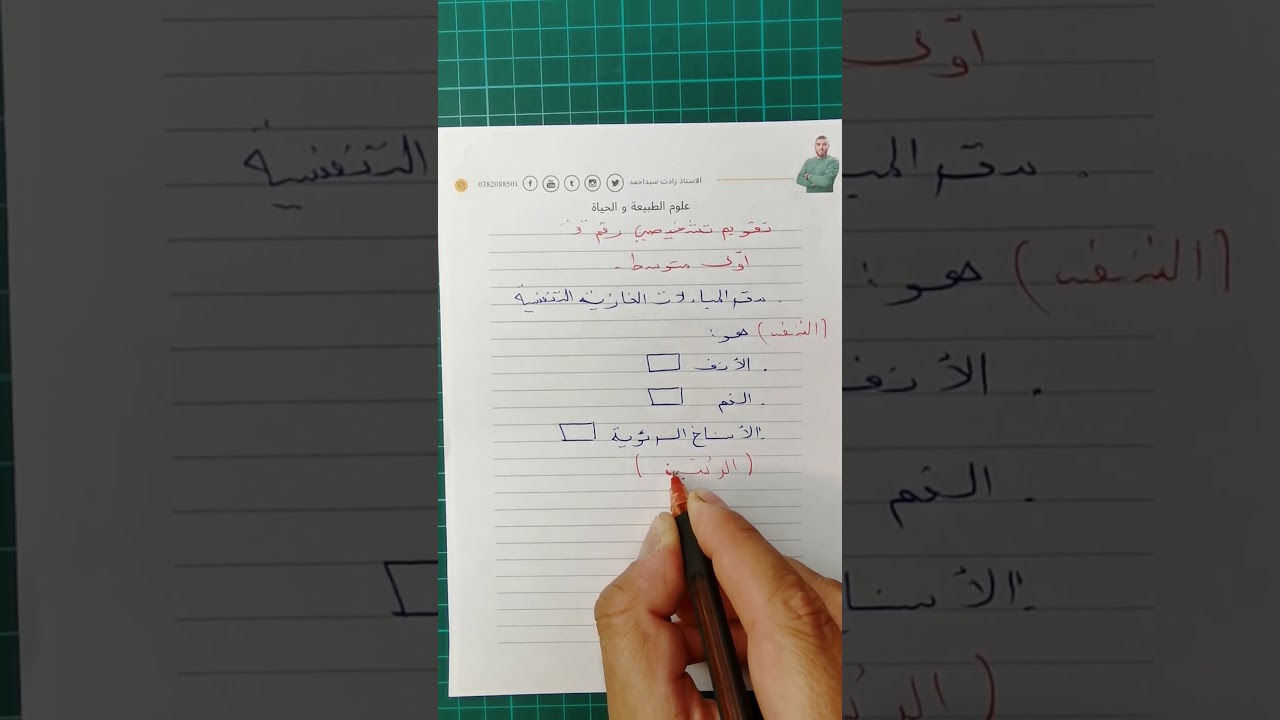 الاستاذ زادت سيداحمد 0782088501
علوم الطبيعة و الحياة
تقويم تشخيصي رقم
أولى متوسط.
. مقر المبادلات الغازية التنفسية
(التنفس) هو:
. الأنف
. الفم
. الأسناخ الرئوية
(الرئتين)